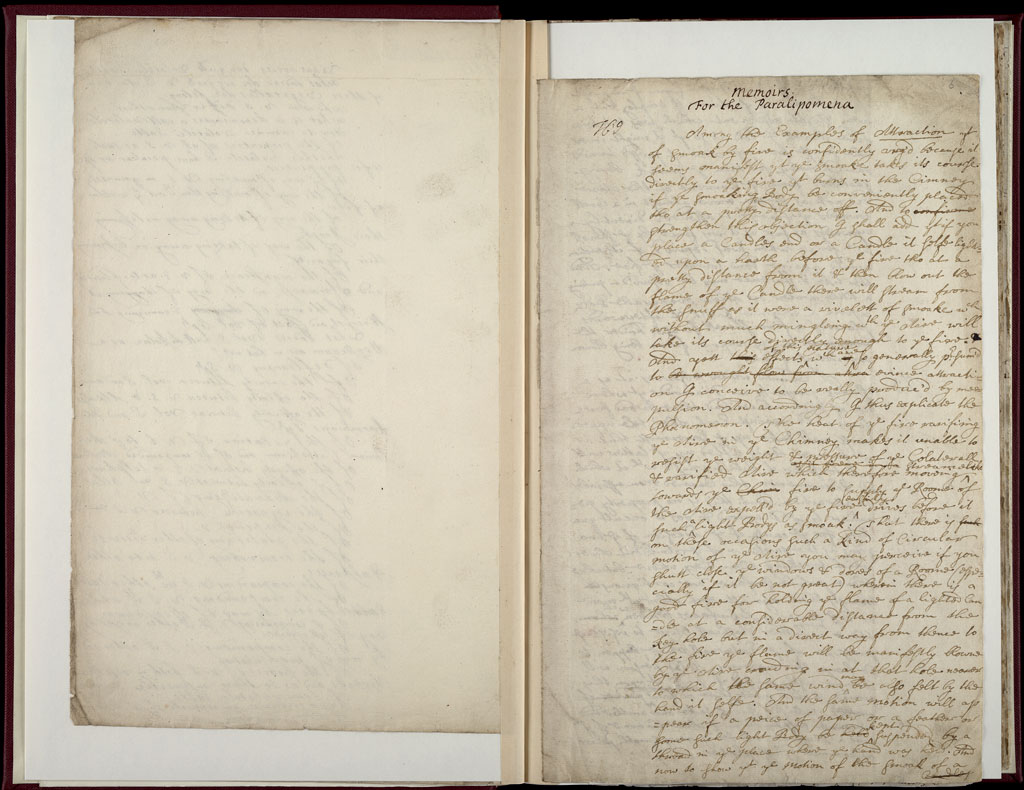 Memoirs
For the Paralipomena
769
Among the Examples of Attraction yt
of smoak by fire is confidently urg'd because it
seems manifest yt ye smoake takes its course
directly to ye fire yt burns in the Cimney
if ye smoaking Body be conveniently plac'd
tho at a pretty distance off. And to
strengthen this objection I shall add yt if you
place a Candles end or a Candle it selfe light-
ed upon a hearth before ye fire tho at a
pretty distance from it & then blow out the
flame of ye Candle there will stream from
the snuff as it were a rivelett of smoake wch
without much mingleing wth ye Aire will
take its course directly enough to ye fire.
And yett effects of this nature wch so generally presum'd
to be brought flow from evince attracti-
on I conceive to be really produc'd by
pulsion. And according I thus explicate the
Phaenomenon. The heat of ye fire rarifying
ye Aire in ye Chimney makes it unable to
resist ye weight & pressure of ye Colaterall
& rarified Aire which therefore moveing
towards ye fire to supply ye Roome of
the Aire expell'd by ye fire drives before it
such light Bodys as smoak. that there is
on these occasions such a kind of Circular
motion of ye Aire you may perceive if you
shutt close ye windows & dores of a Roome (espe-
cially if it be not great) wherein there is a
good fire for holding ye flame of a lighted Can
-dle at a considerable distance from the
key hole but in a direct way from thence to
the fire ye flame will be manifestly blowne
by ye Aire crouding in at that hole neare
to which the same wind may be also felt by the
hand it selfe. And the same motion will ap
-pear if a peice of paper or a feather or
some such light Body be kept suspended by a
thread in ye place where ye hand was. And
now to show yt ye motion of the smoak of a
Candle